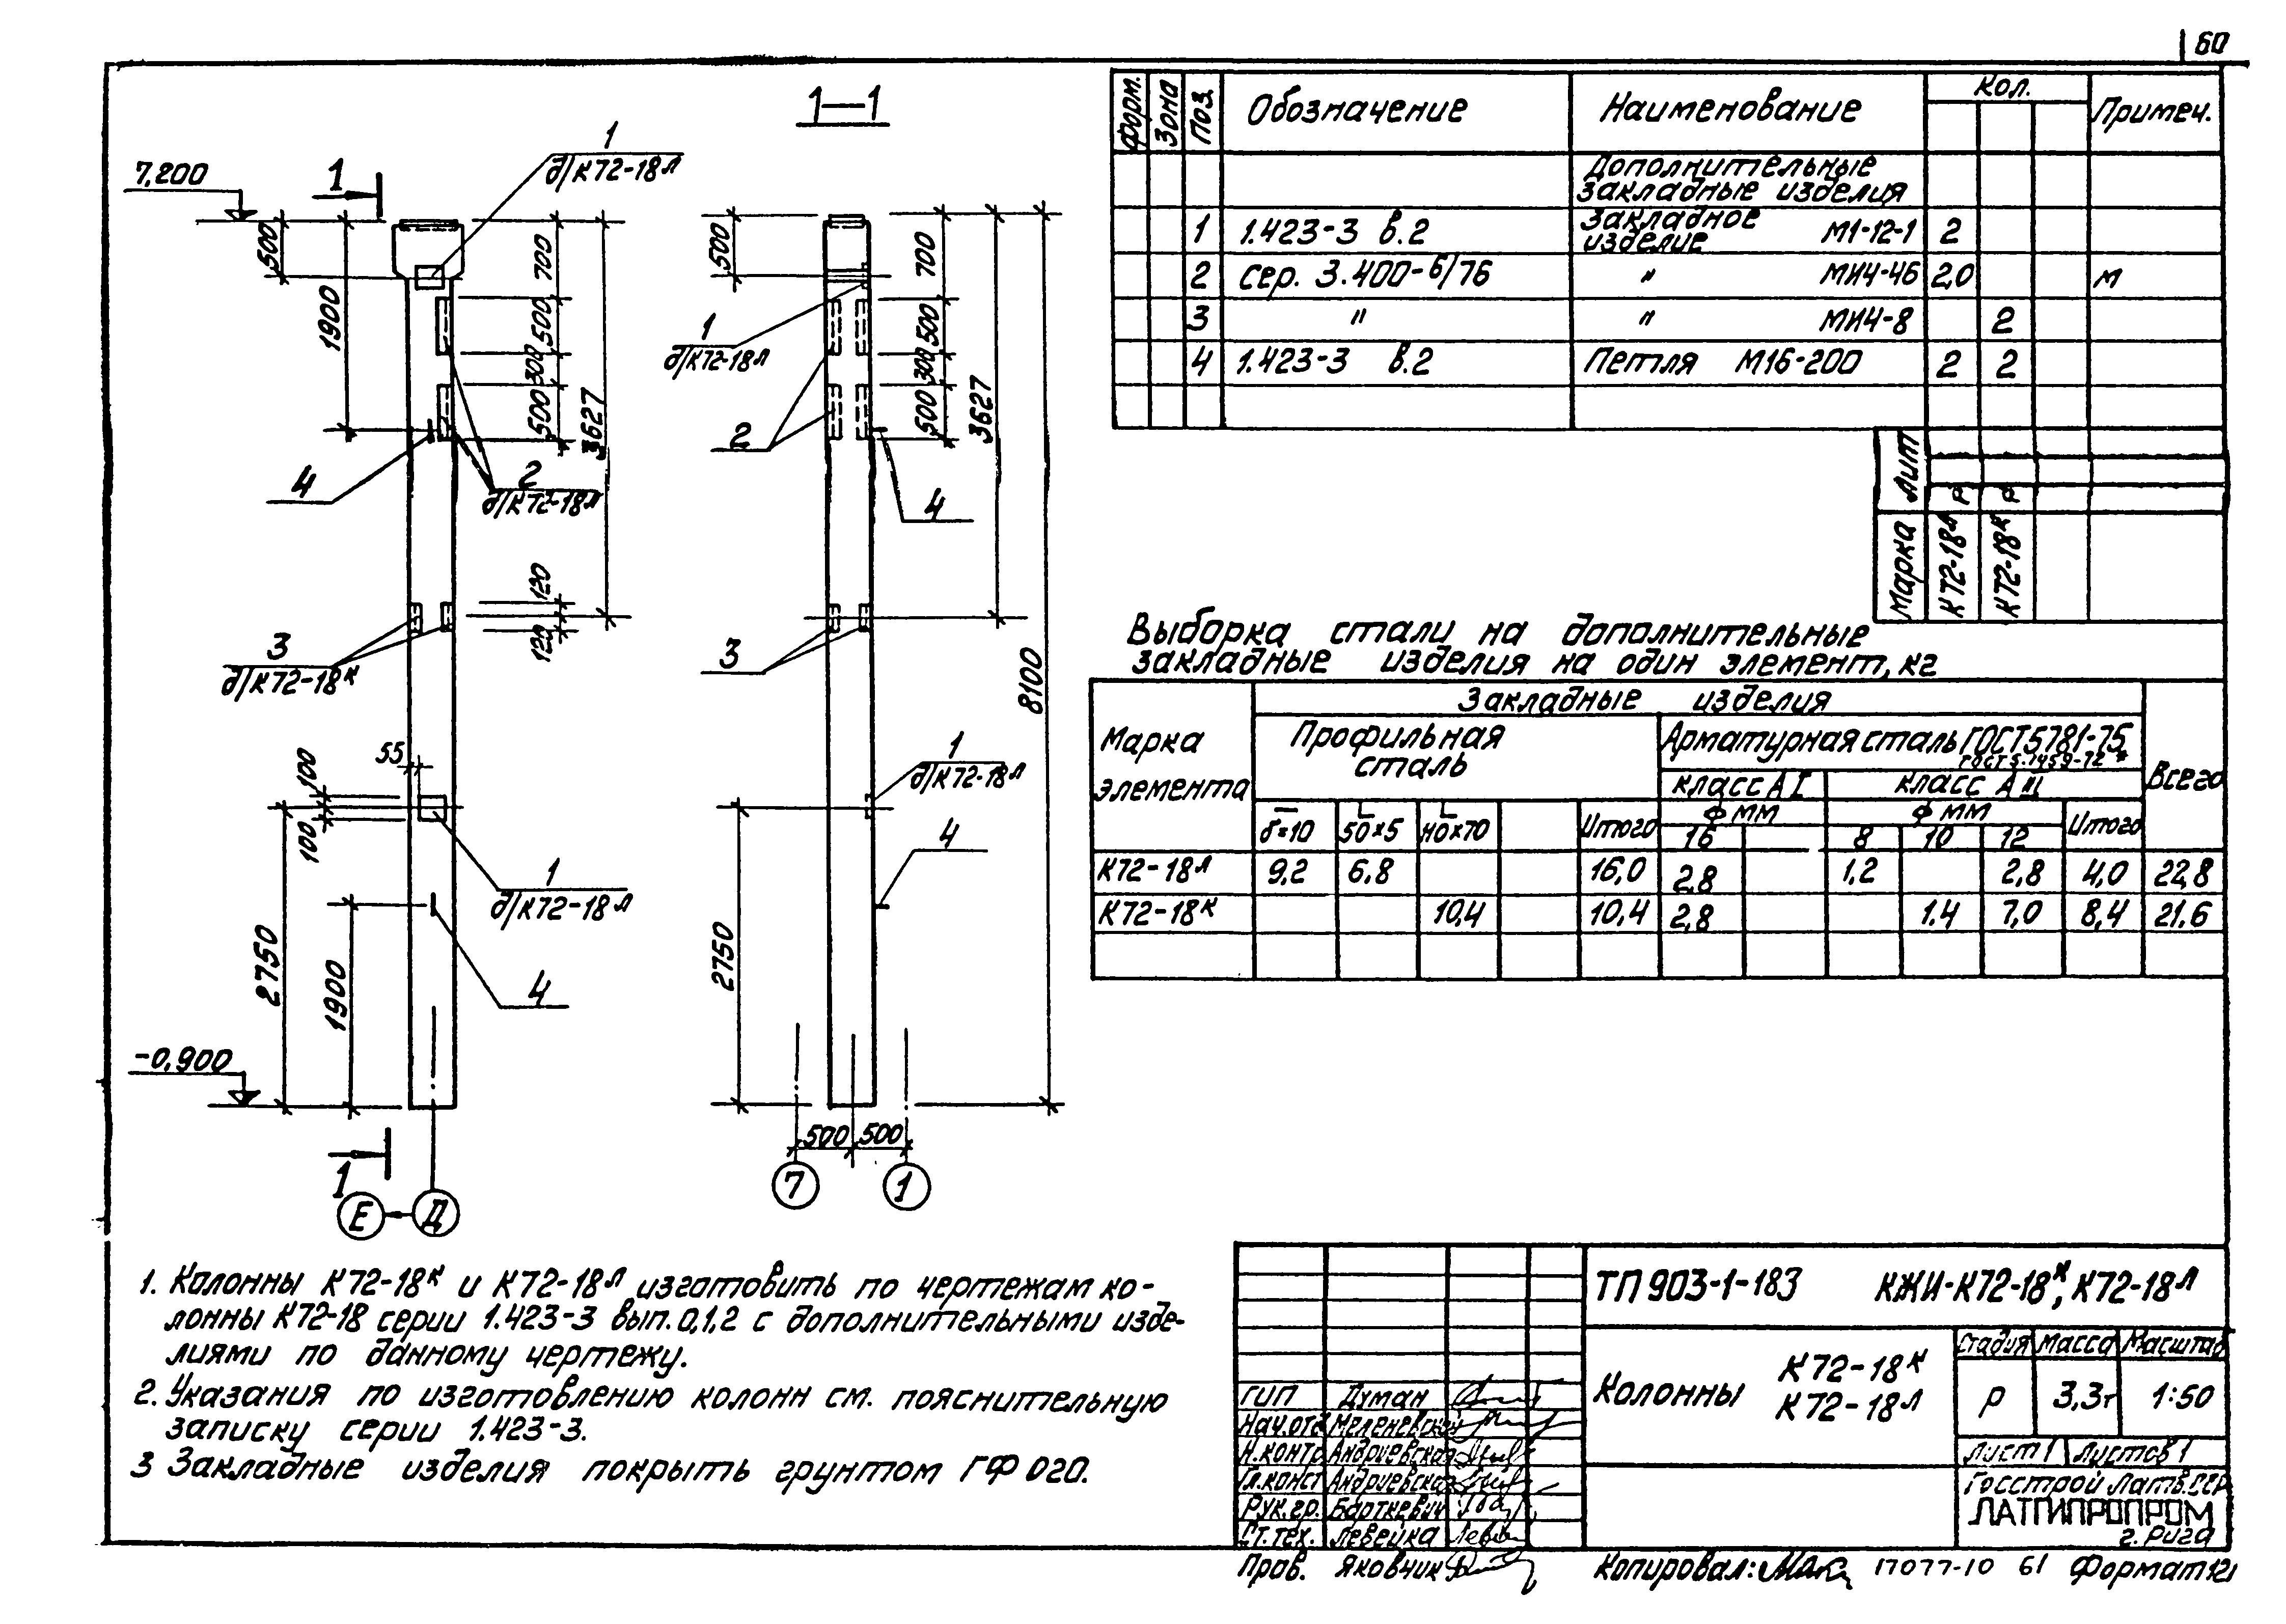 60
1—1
1
д/К72-18Л
7,200
1
500
1900
700
500
300
500
3627
4
2
д/К72-18Л
120
120
3
д/К72-18К
55
100
100
1
д/К72-18Л
2750
1900
4
-0,900
1
Е
Д
500
700
500
300
500
3627
8100
1
д/К72-18Л
2
4
3
1
д/К72-18Л
4
2750
500 500
7
1
Форм. Зона Поз. Обозначение Наименование Кол. Примеч.
Дополнительные
закладные изделия
1 1.423-3 в.2 Закладное изделие М1-12-1 2
2 сер. 3.400-6/76 " МИ4-4б 2,0 м
3 " " МИ4-8 2
4 1.423-3 в.2 Петля М16-200 2 2
Лит. Р Р
Марка К72-18Л К72-18К
Выборка стали на дополнительные
закладные изделия на один элемент, кг
Марка элемента
Закладные изделия
Профильная сталь
Арматурная сталь ГОСТ 5781-75
ГОСТ 5.1459-72*
Всего
класс А I класс А III
ф мм ф мм
δ=10 50×5 110×70 Итого 16 8 10 12 Итого
К72-18Л 9,2 6,8 16,0 2,8 1,2 2,8 4,0 22,8
К72-18К 10,4 10,4 2,8 1,4 7,0 8,4 21,6
1. Колонны К72-18К и К72-18Л изготовить по чертежам ко-
лонны К72-18 серии 1.423-3 вып. 0,1,2 с дополнительными изде-
лиями по данному чертежу.
2. Указания по изготовлению колонн см. пояснительную
записку серии 1.423-3.
3 Закладные изделия покрыть грунтом ГФ 020.
ТП 903-1-183 КЖИ-К72-18К, К72-18Л
Колонны К72-18К
К72-18Л
Стадия Масса Масштаб
Р 3,3т 1:50
Лист 1 Листов 1
Госстрой Латв.ССР
ЛАТГИПРОПРОМ
г. Рига
ГИП Думан
Нач.отд Меленевский
Н.контр Андриевская
Гл.конст Андриевская
Рук.гр. Барткевич
Ст.тех. Левейка
Пров. Яковчик
Копировал: 17077-10 61 Формат 12